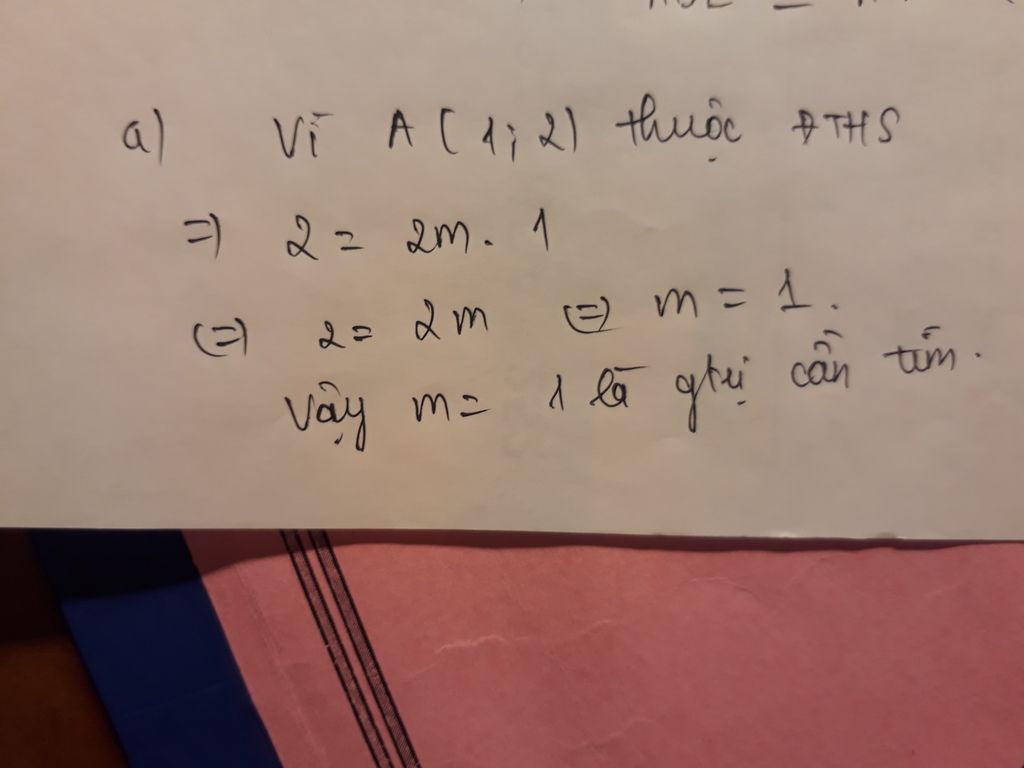 a) Vì A (1; 2) thuộc ĐTHS
=> 2 = 2m. 1
(=) 2 = 2m (=) m = 1.
Vậy m = 1 là gtrị cần tìm.